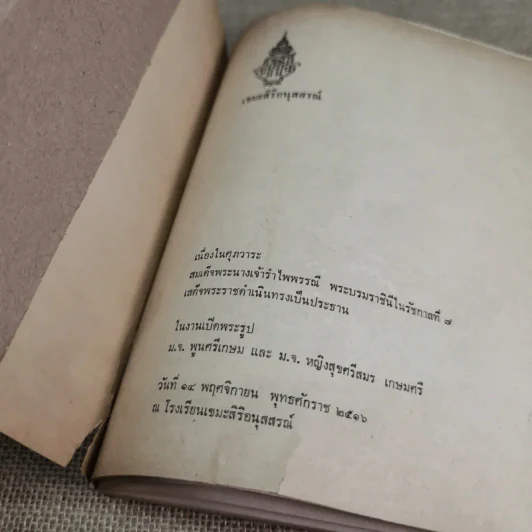 เขมะสิริอนุสสรณ์
เนื่องในศุภวาระ
สมเด็จพระนางเจ้ารำไพพรรณี พระบรมราชินีในรัชกาลที่ ๗
เสด็จพระราชดำเนินทรงเป็นประธาน
ในงานเปิดพระรูป
ม.จ. พูนศรีเกษม และ ม.จ. หญิงสุขศรีสมร เกษมศรี
วันที่ ๑๔ พฤศจิกายน พุทธศักราช ๒๕๑๖
ณ โรงเรียนเขมะสิริอนุสสรณ์